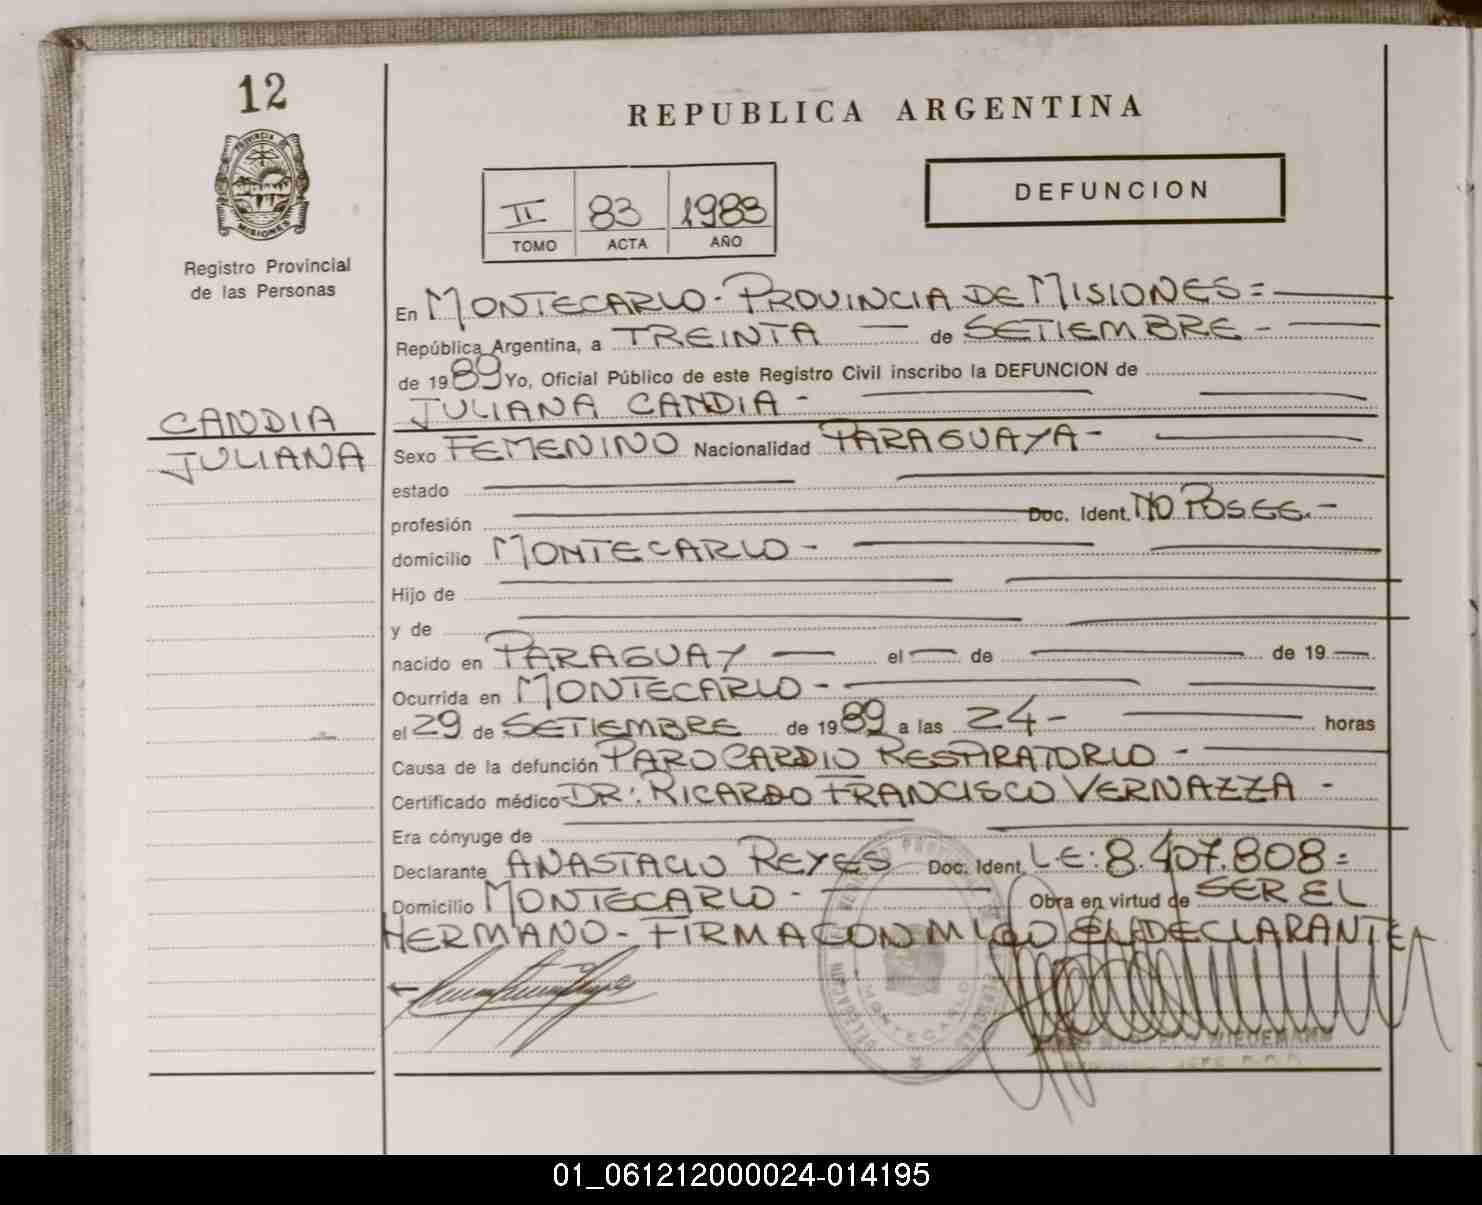 12
PROVINCIA DE
MISIONES
Registro Provincial
de las Personas
CANDIA
JULIANA
REPUBLICA ARGENTINA
II 83 1989
TOMO ACTA AÑO
DEFUNCION
En MONTECARLO - PROVINCIA DE MISIONES =
República Argentina, a TREINTA — de SETIEMBRE -
de 1989 Yo, Oficial Público de este Registro Civil inscribo la DEFUNCION de
JULIANA CANDIA -
Sexo FEMENINO Nacionalidad PARAGUAYA -
estado
profesión Doc. Ident. NO POSEE.-
domicilio MONTECARLO -
Hijo de
y de
nacido en PARAGUAY — el — de — de 19 —
Ocurrida en MONTECARLO -
el 29 de SETIEMBRE de 1989 a las 24 - horas
Causa de la defunción PARO CARDIO RESPIRATORIO -
Certificado médico DR: RICARDO FRANCISCO VERNAZZA -
Era cónyuge de
Declarante ANASTACIO REYES Doc. Ident. L.E: 8.407.808 =
Domicilio MONTECARLO - Obra en virtud de SER EL
HERMANO - FIRMA CONMIGO EL DECLARANTE
MONTECARLO
WIEDEMANN
01_061212000024-014195